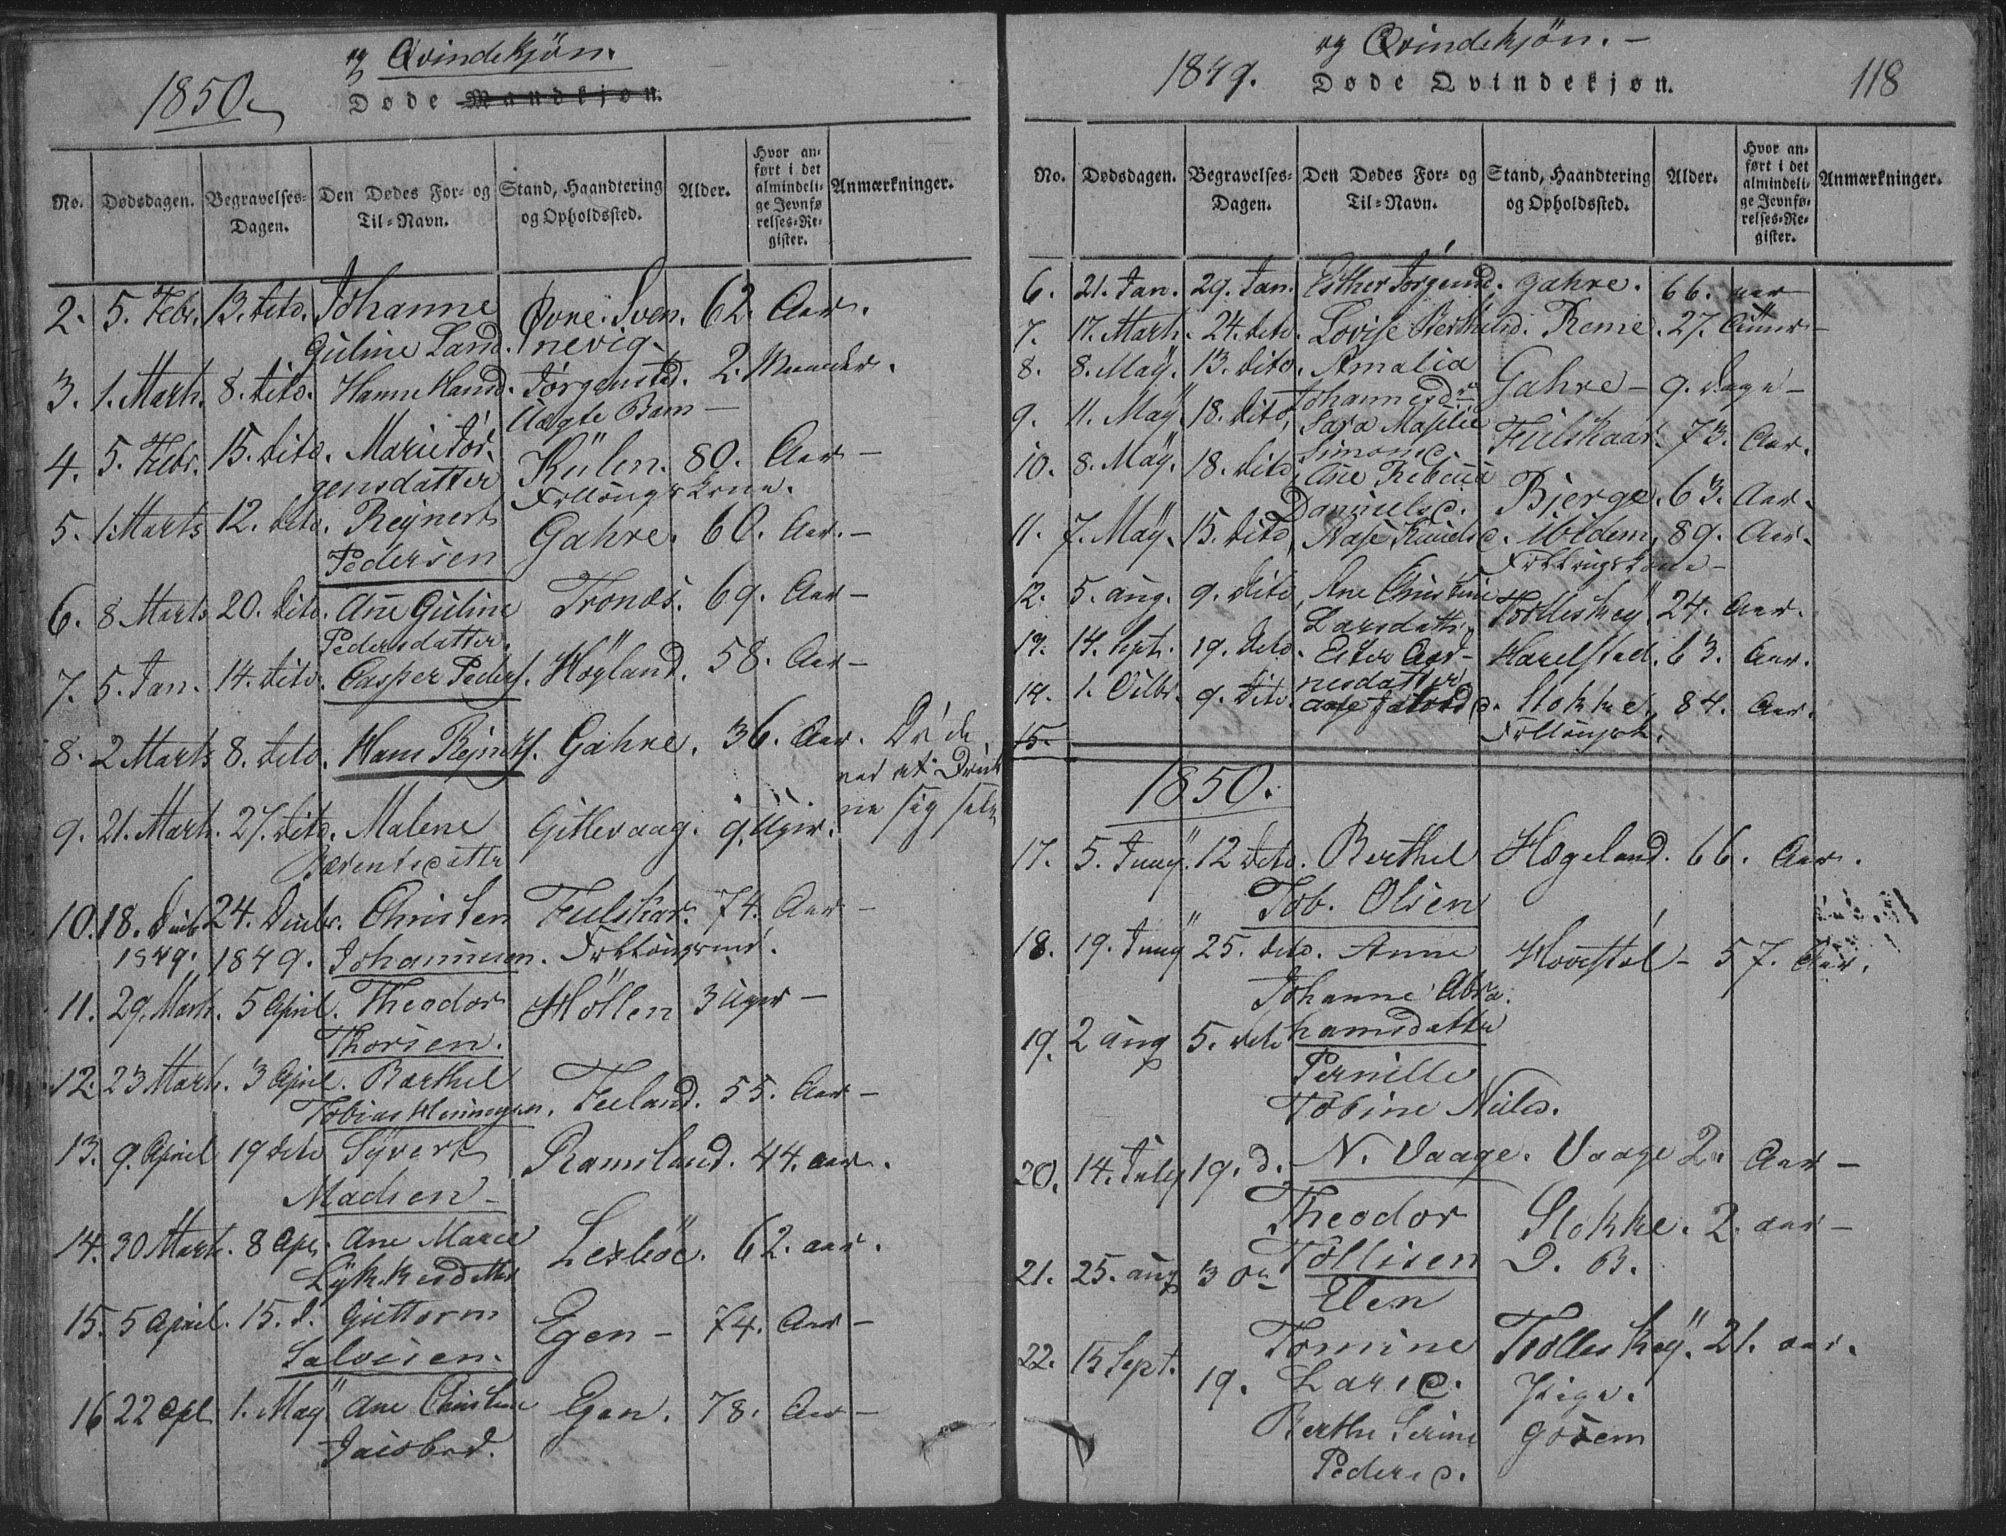 1850.
og Qvindekjøn.
Døde Mandkjøn.
No. Dødsdagen. Begravelses-Dagen. Den Dødes For- og Til-Navn. Stand, Haandtering og Opholdssted. Alder. Hvor anført i det almindelige Jevnførelses-Register. Anmærkninger.
2. 5. Febr. 13. dito. Johanne Øvre. Sven. 62. Aar.
Guline Land. nevig.
3. 1. Marts. 8. dito. Hanne Hansd. Jørgensted. 2. Maaneder.
Uægte Barn —
4. 5. Febr. 15. dito. Marie Jør- Külen. 89. Aar —
gensdatter Follougskone.
5. 1. Marts 12. dito. Rejnert Gahre. 60. Aar. —
Pedersen
6. 8 Marts 20. dito. Ane Guline Tronæs. 69. Aar —
Pedersdatter.
7. 5. Jan. 14. dito. Casper Peders. Høyland. 58. Aar —
8. 2 Marts 8. dito. Hans Rejnerts. Gahre. 36. Aar. Døde
ved at Druk
ne sig selv
9. 21. Marts. 27. dito. Malene Gitlevaag. 9. Uger.
Berentsdatter
10. 18. Decbr 24. Decbr. Christen Fuilskar. 74. Aar —
1849. 1849. Johannesen. Follougsmd.
11. 29. Marts. 5 April. Theodor Høllen 3 Uger —
Thorsen.
12. 23 Marts. 3 April. Barthel Feeland. 55. Aar —
Tobias Henningsen.
13. 9. April 19 dito Syvert Ramsland. 44. aar.
Madsen —
14. 30 Marts. 8 Apr. Ane Marie Lexböe. 62. aar.
Lykkesdatter
15. 5 April. 15. d. Guttorm Egen — 74. Aar —
Salvesen.
16 22 Apl 1. May Ane Christine Egen. 78. Aar —
Jacobsd.
1849.
og Qvindekjøn. —
Døde Qvindekjøn.
118
No. Dødsdagen. Begravelses-Dagen. Den Dødes For- og Til-Navn. Stand, Haandtering og Opholdssted. Alder. Hvor anført i det almindelige Jevnførelses-Register. Anmærkninger.
6. 21. Jan. 29. Jan. Esther Jørgensd. Gahre. 66. aar
7. 17. Marts. 24. dito. Lovise Berthelsd. Reme. 27. Aar —
8. 8. May. 13. dito. Amalia Gahre — 9. Dage —
Johannesdr
9. 11. May. 18. dito, Sara Malie Fuilskaar. 73. Aar.
Simonsd.
10. 8. May. 18. dito, Ane Rebecca Bjerge. 63. Aar.
Danielsd.
11. 7. May. 15. dito, Aase Knudsd. ibidem. 89. Aar.
Follougskone —
12. 5. Aug. 9. dito, Ane Christine Trolleskey 24. Aar.
Larsdatter
13. 14. Sept. 19. dito. Ester Aar- Harelstad. 63. Aar.
nesdatter
14. 1. Octbr. 9. dito. Aase Jacobsd. Stokke. 84. Aar.
15. Follougsk.
1850.
17. 5. Juny. 12 dito. Berthel Hægeland. 66. Aar.
Tob. Olsen
18. 19. Juny 25. dito. Anne Hovestøl — 57. Aar.
Johanne Abra.
19. 2 Aug 5. dito hamsdatter
Pernille
Tobine Niels.
N. Vaage. Vaage 2. Aar —
20. 14. July 19. d. Theodor Stokke. 2. aar —
Tollisen D. B.
21. 25. Aug 3 Elen
Tomine Trolleskey. 21. aar.
22. 15 Sept. 19. Larsd. Pige.
Berthe Serine Gosem
Pedersd.